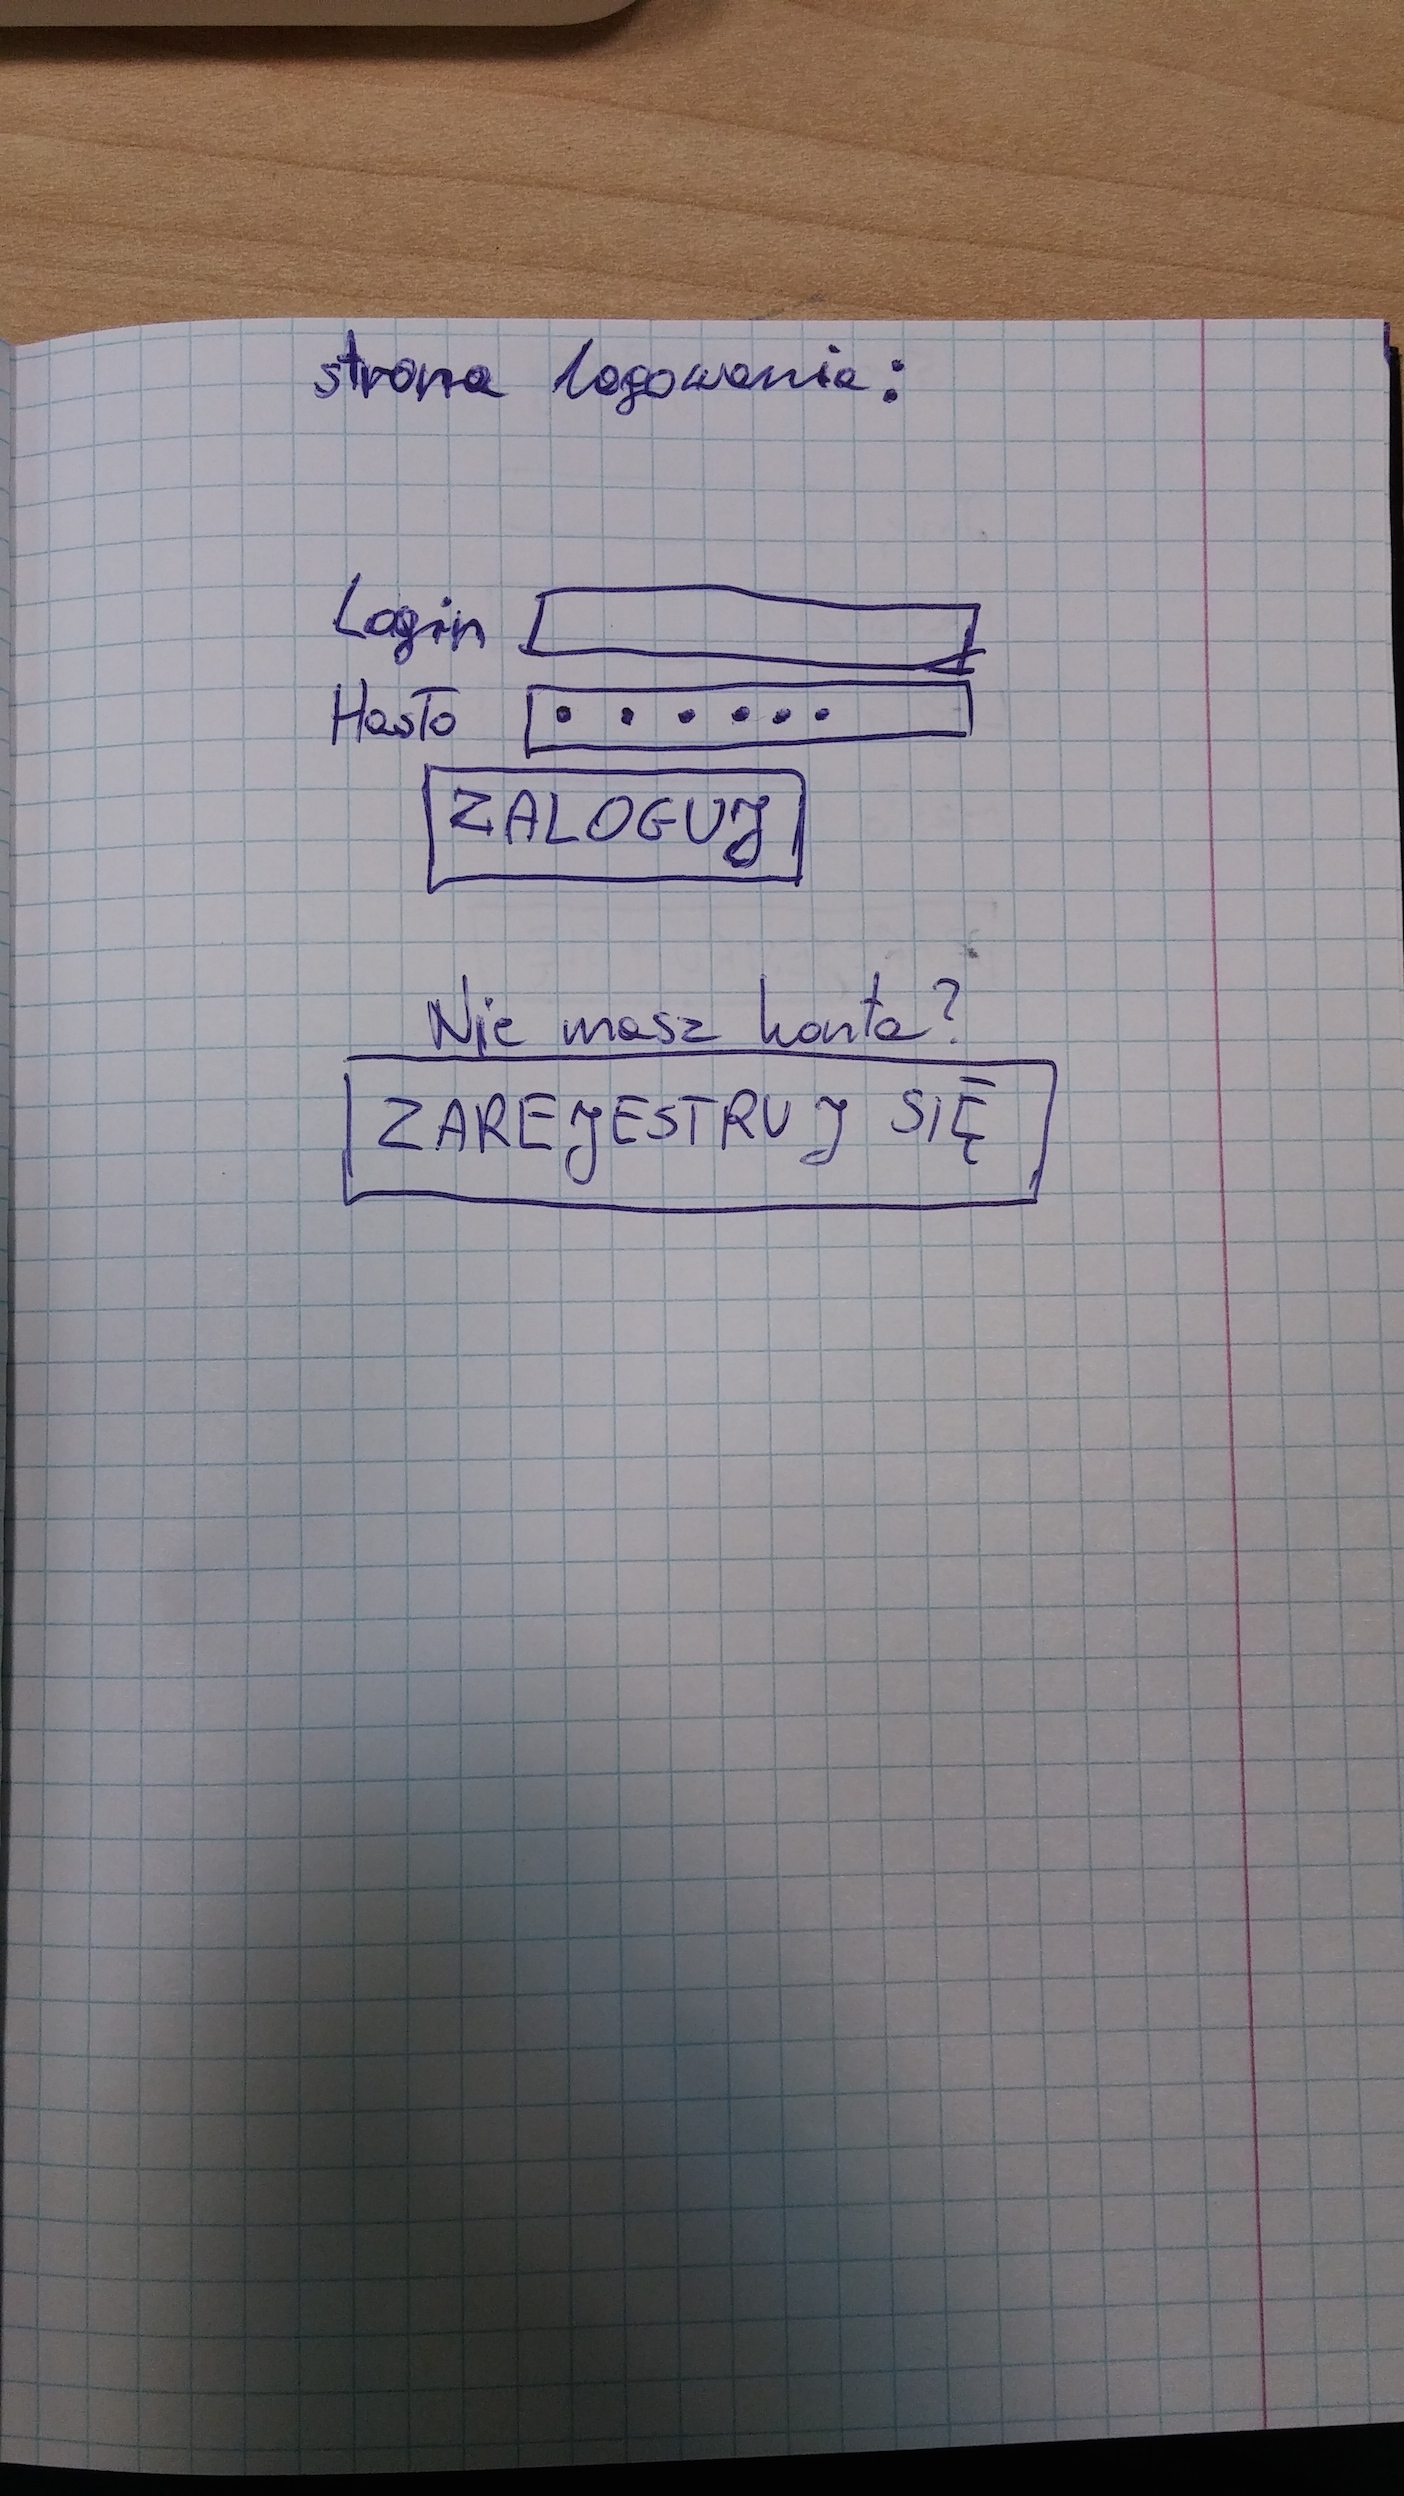 strona logowania:
Login
Hasło
ZALOGUJ
Nie masz konta?
ZAREJESTRUJ SIĘ